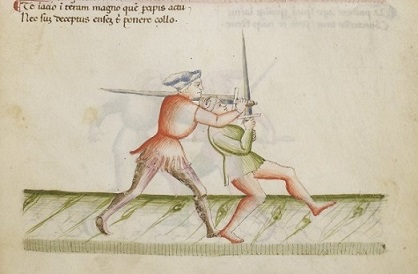 Te iacio ī teram magno quē papis actu
Nec fui deceptus ensez t̄ ponere collo.